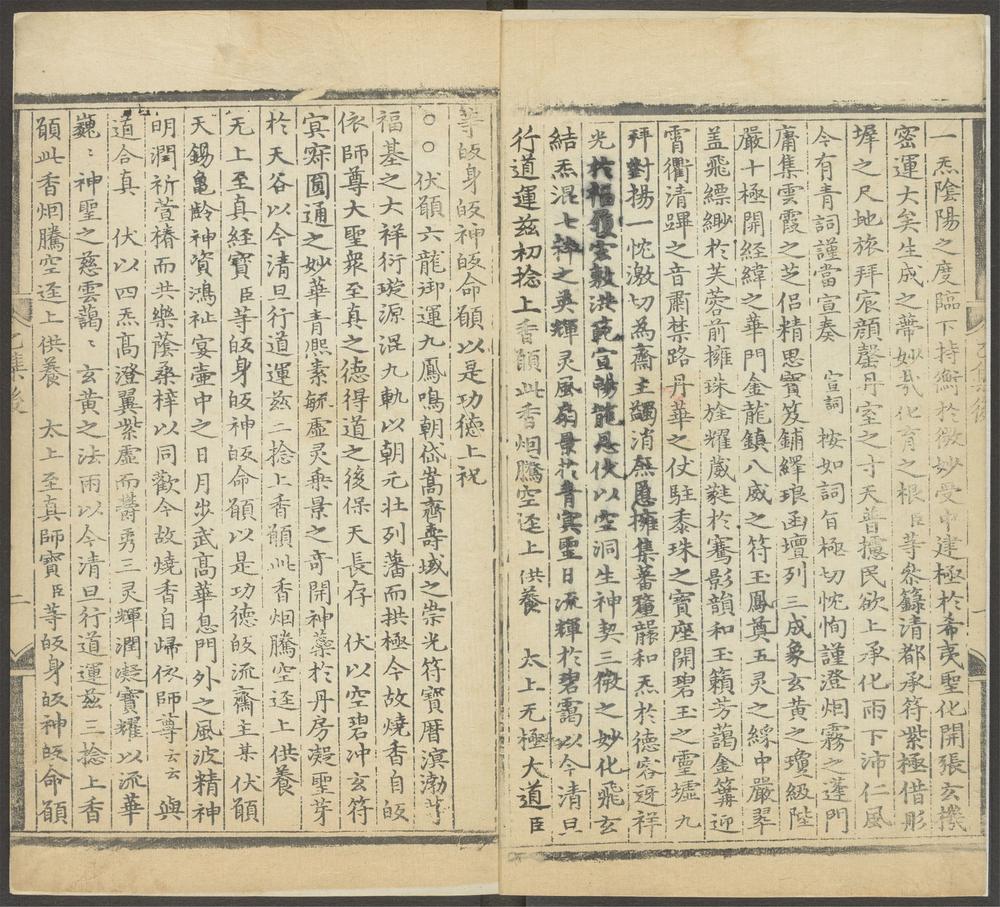 一炁陰陽之度臨下持衡於微妙受中建極於希夷聖化開張玄機
密運大矣生成之蒂妙哉化育之根臣等叅籙清都承符紫極借彤
墀之尺地旅拜宸顏罄丹室之寸天普攄民欲上承化雨下沛仁風
今有青詞謹當宣奏 宣詞 按如詞旨極切忱恂謹澄烟霧之蓬門
庸集雲霞之芝侶精思寶笈鋪繹琅函壇列三成象玄黃之瓊級陛
嚴十極開經緯之華門金龍鎮八威之符玉鳳奠五灵之綵中嚴翠
盖飛縹緲於芙蓉前擁珠旌耀葳蕤於鶱影韻和玉籟芳藹金篝迎
霄衢清蹕之音肅禁路丹華之仗駐黍珠之寶座開碧玉之靈墟九
拜對揚一忱激切為齋主蠲消無集蕃釐和炁於德容迓祥
光於宣伏以空洞生神契三微之妙化飛玄
結炁混七之英輝灵風扇景於青冥聖日流輝於碧靄以今清旦
行道運兹初捻上香願此香烟騰空逕上供養 太上无極大道臣
等皈身皈神皈命願以是功德上祝
○○伏願六龍御運九鳳鳴朝岱嵩齊壽域之崇光符寶曆溟渤
福基之大祥衍璇源混九軌以朝元壯列藩而拱極今故燒香自皈
依師尊大聖衆至真之德得道之後保天長存 伏以空碧冲玄符
㝠寂圓通之妙華青熙素毓虛灵乘景之奇開神蘂於丹房凝聖芽
於天谷以今清旦行道運兹二捻上香願此香烟騰空逕上供養
无上至真経寶臣等皈身皈神皈命願以是功德皈流齋主某伏願
天錫亀齡神資鴻祉宴壷中之日月步武高華息門外之風波精神
明潤祈萱椿而共樂蔭桑梓以同歡今故燒香自歸依師尊云云與
道合真 伏以四炁高澄翼紫虛而欝秀三灵輝潤凝寶耀以流華
巍〻神聖之慈雲藹〻玄黃之法雨以今清旦行道運兹三捻上香
願此香烟騰空逕上供養 太上至真師寶臣等皈身皈神皈命願
二